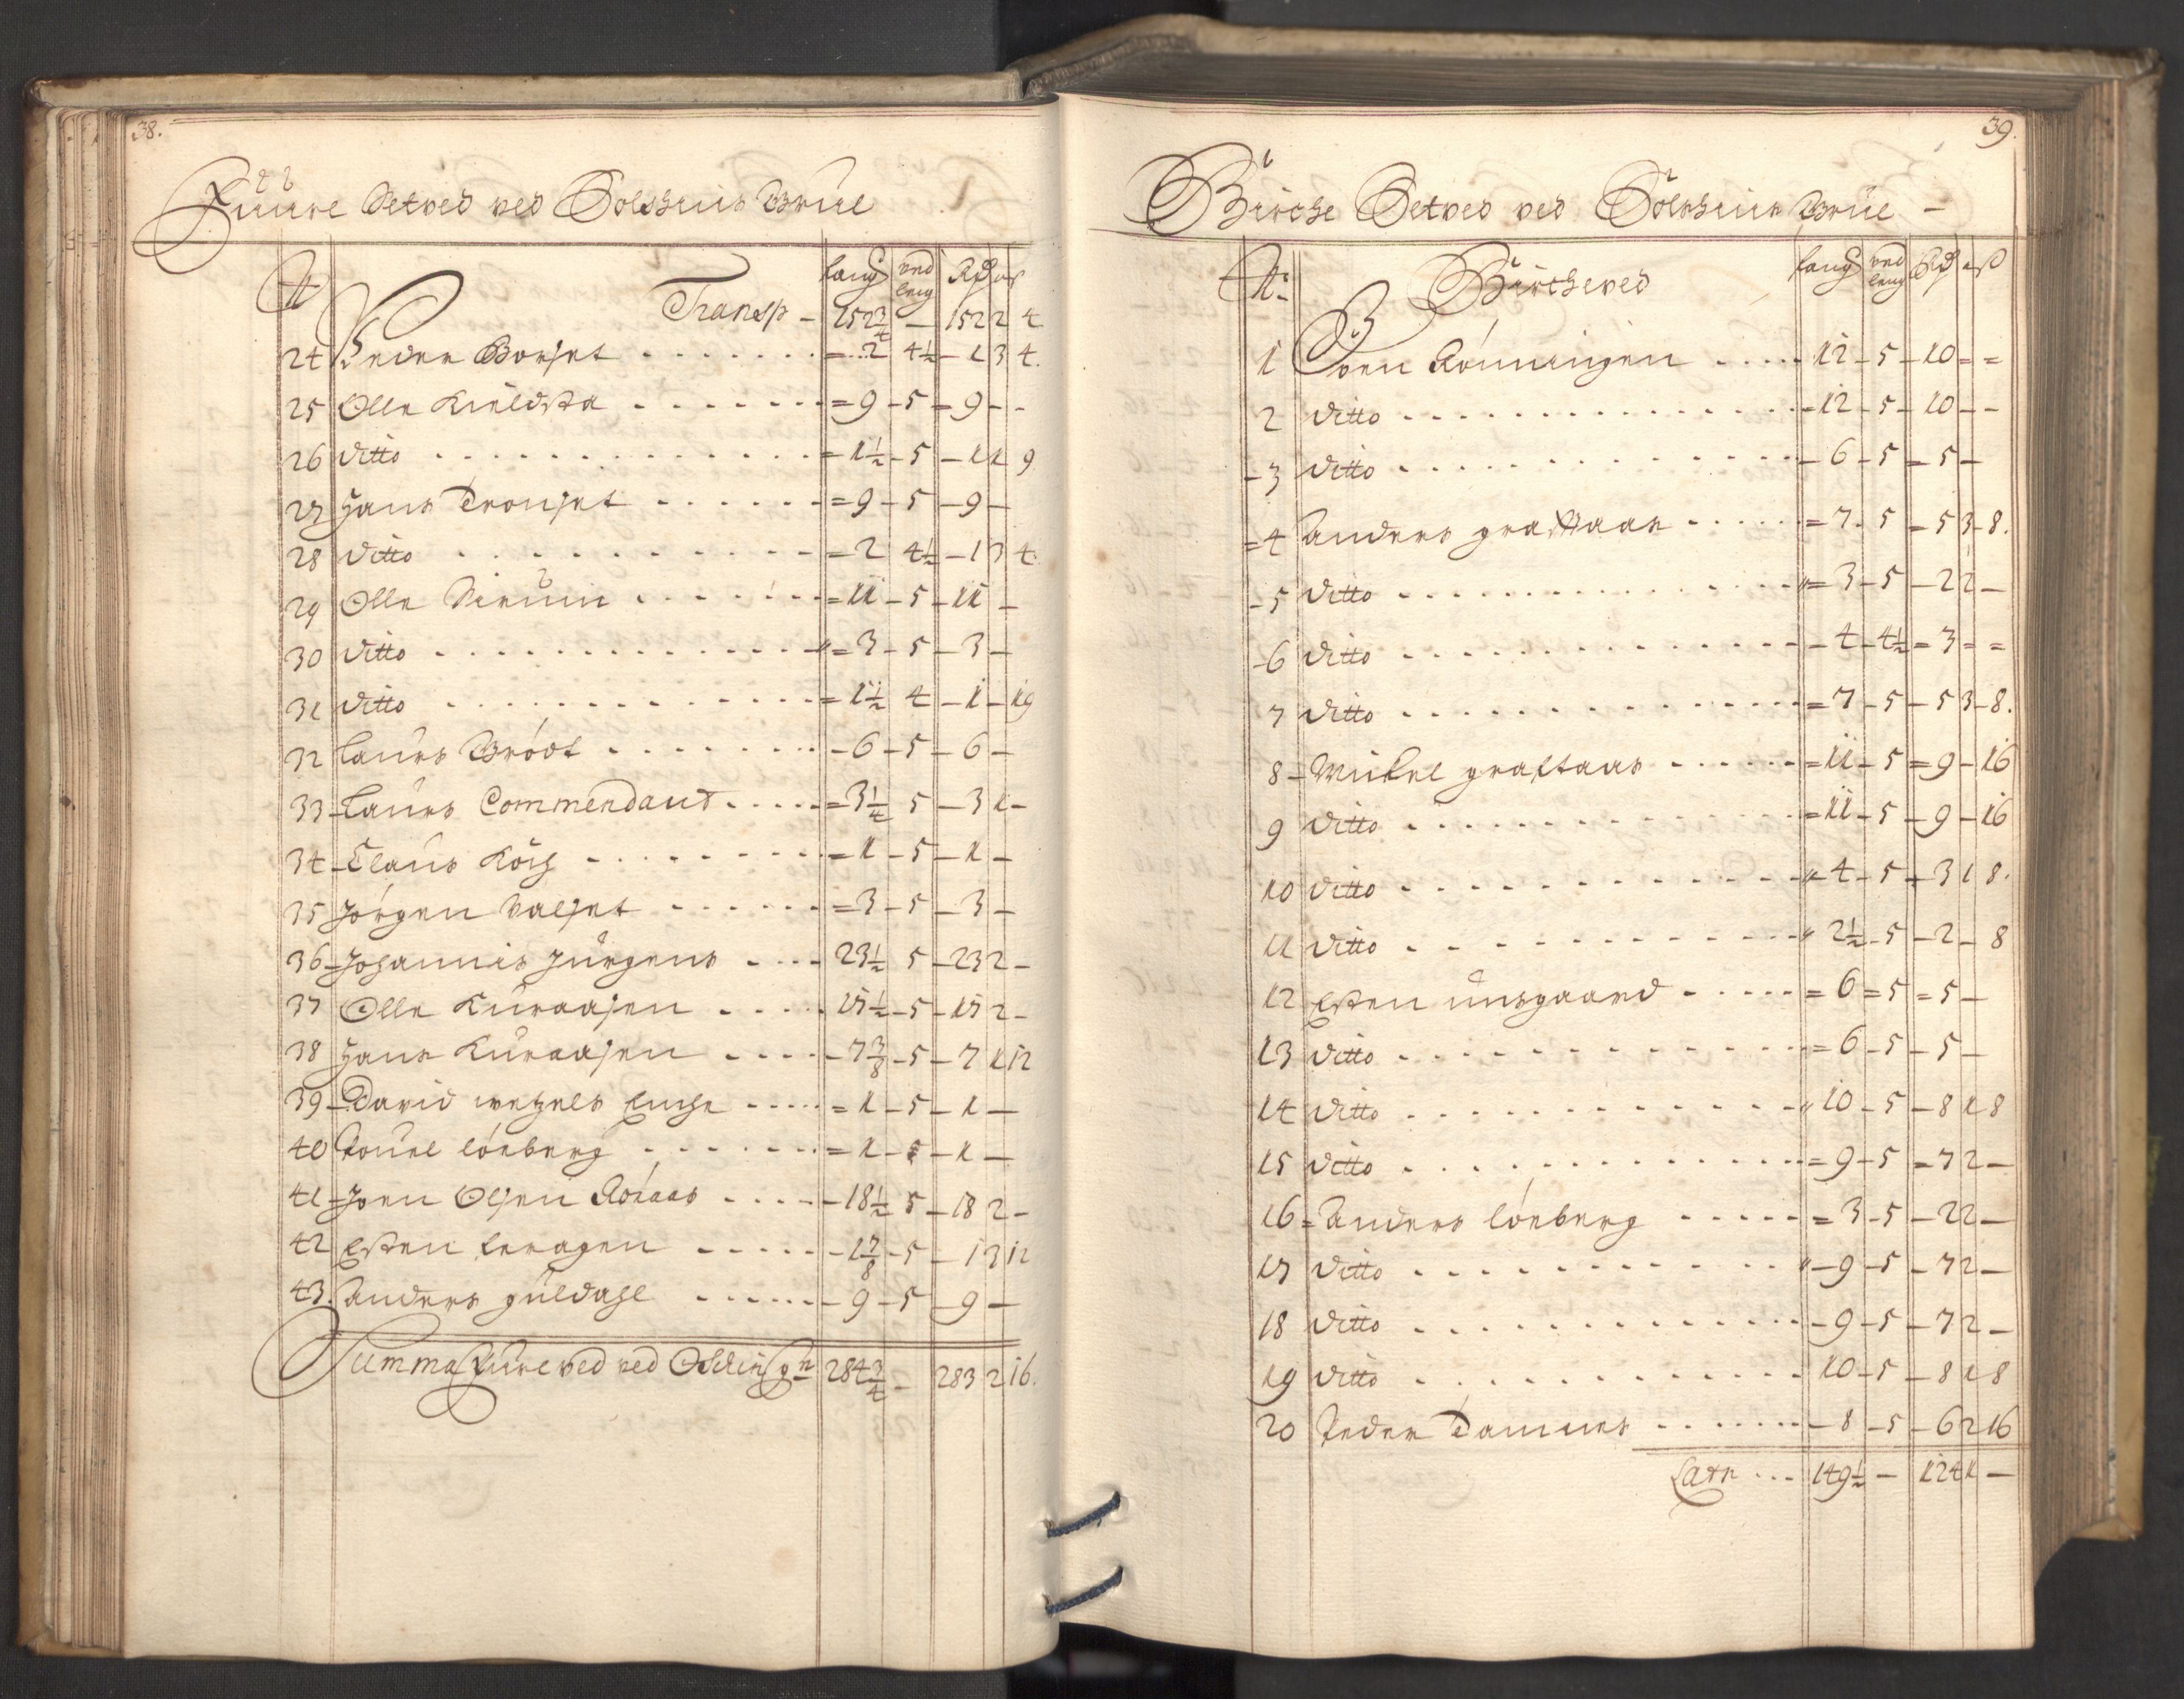 38.
Fuure Setved ved Solskins Brue
N Transp - 152 3/4 - 152 2 4
lang ved leng Rd ort ß
24 Peder Borset . . . . . . . = 2 4 1/2 - 1 3 4.
25 Olle Kieldsta . . . . . . . = 9 - 5 = 9 - -
26 ditto . . . . . . . = 1 1/2 - 5 - 1 1 9
27 Hans Tronset . . . . . . . = 9 - 5 - 9 -
28 ditto . . . . . . . = 2 4 1/2 - 1 3 4.
29 Olle Virum . . . . . . . = 11 - 5 - 11 -
30 ditto . . . . . . . = 3 - 5 - 3 -
31 ditto . . . . . . . = 1 1/2 4 - 1 - 19
32 Laurs Brödt . . . . . . . - 6 - 5 - 6 -
33 - Laurs Commendant . . . . . = 3 1/4 5 - 3 1 -
34 - Claus Koch . . . . . . . = 1 - 5 - 1 -
35 Jörgen Valset . . . . . . . = 3 - 5 - 3 -
36 - Johannis Jürgens . . . . 23 1/2 5 - 23 2 -
37 Olle Kuraasen . . . . 15 1/2 - 5 - 15 2 -
38 Hans Kuraasen . . . . - 7 3/8 - 5 - 7 1 12
39 - David wezels Enche . . . . . = 1 - 5 - 1 -
40 Poul lönberg . . . . . . . = 1 - 5 - 1 -
41 - Joen Olsen Röraas . . . . . - 18 1/2 5 - 18 2 -
42 Esten Feragen . . . . . - 1 7/8 - 5 - 1 3 12
43. Anders guldahl . . . . . . - 9 - 5 - 9 -
Summa Fureved ved 284 3/4 - 283 2 16.
39.
Birche Setved ved Solskins Brue -
N: Bircheved lang ved leng Rd ort ß
1 Joen Rönningen . . . . . 12 - 5 - 10 = =
2 ditto . . . . . . . = 12 - 5 - 10 - -
- 3 ditto . . . . . . . - 6 - 5 = 5 -
= 4 Anders graftaas . . . . . . = 7 - 5 = 5 3 - 8.
- 5 ditto . . . . . . . " = 3 - 5 - 2 2 -
- 6 ditto . . . . . . . - 4 - 4 1/2 = 3 = =
7 ditto . . . . . . . = 7 - 5 - 5 3 - 8.
8 - Mikel graftaas . . . . . . = 11 - 5 = 9 - 16
9 ditto . . . . . . . = 11 - 5 - 9 - 16
10 ditto . . . . . . . " - 4 - 5 - 3 1 8.
11 ditto . . . . . . . " 2 1/2 - 5 - 2 - 8
12 Esten unsgaard . . . . . = 6 = 5 = 5 -
13 ditto . . . . . . . = 6 - 5 - 5 -
14 ditto . . . . . . . " 10 - 5 - 8 1 8
15 ditto . . . . . . . = 9 - 5 = 7 2 -
16 = Anders lönberg . . . . . = 3 - 5 - 2 2 -
17 ditto . . . . . . . " - 9 - 5 - 7 2 -
18 ditto . . . . . . . - 9 - 5 - 7 2 -
19 ditto . . . . . . . 10 - 5 - 8 1 8
20 Peder Tammes . . . . . . . - 8 - 5 - 6 2 16
Latr . . . 149 1/2 - 124 1 -